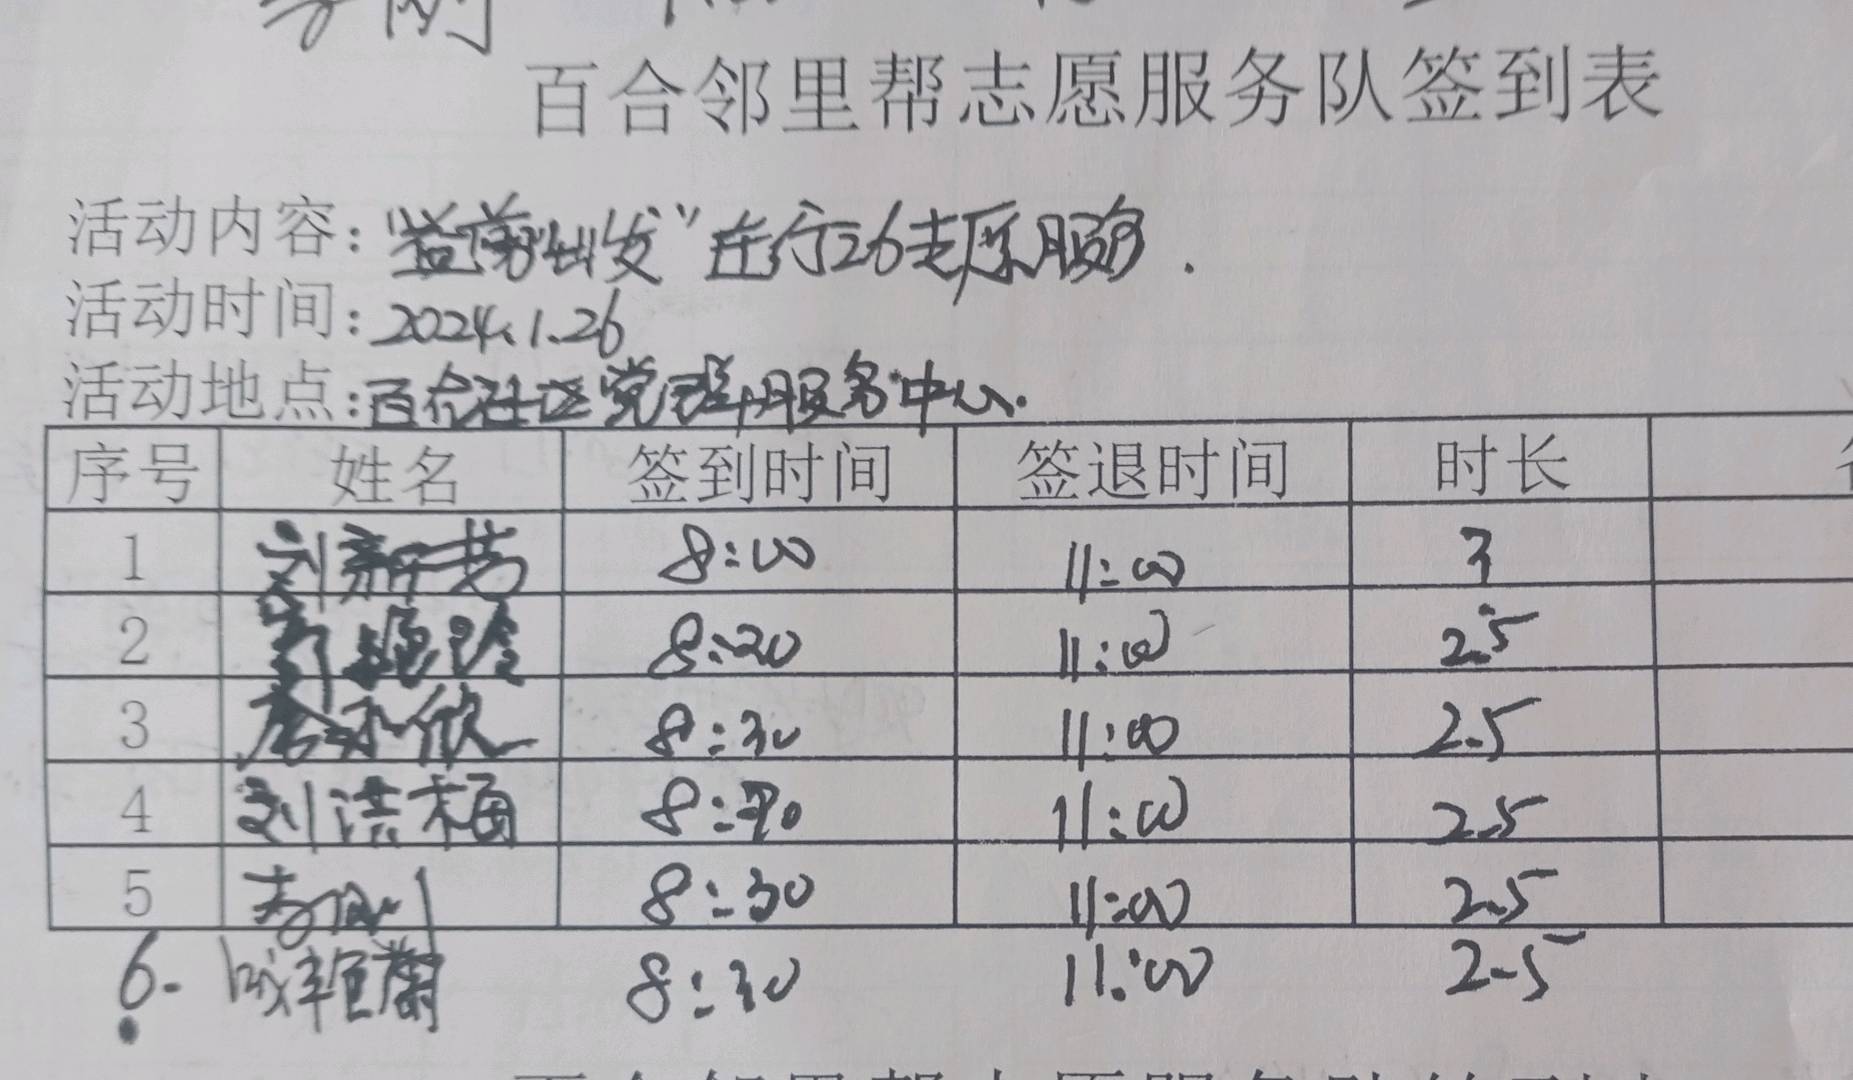 百合邻里帮志愿服务队签到表
活动内容："益剪出发"在行26志愿服务.
活动时间：2024.1.26
活动地点：百合社区党群服务中心.
序号 姓名 签到时间 签退时间 时长
1 刘新芳 8:00 11:00 3
2 8:20 11:00 2.5
3 8:30 11:00 2.5
4 刘洪梅 8:30 11:00 2.5
5 8:30 11:00 2.5
6. 8:30 11:00 2.5